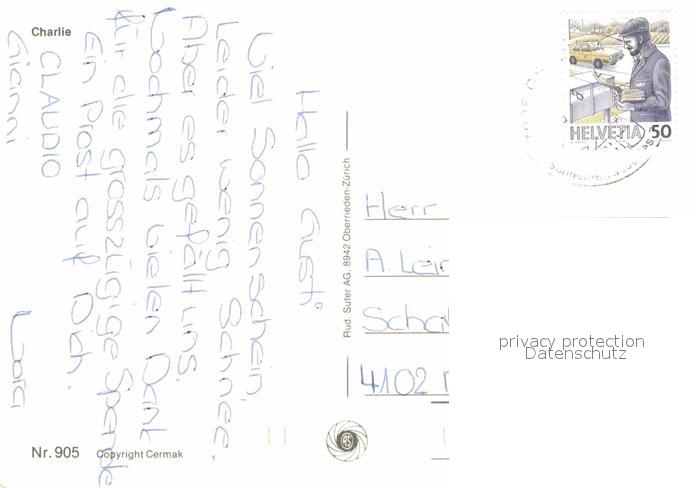 Charlie
Hallo Gusti
Viel Sonnenschein,
Leider wenig Schnee.
Aber es gefällt uns.
Nochmals vielen Dank
für die grosszügige Spende
Ein Prost auf Dich.
CLAUDIO
Gianni
Nr. 905 Copyright Cermak
Rud. Suter AG. 8942 Oberrieden-Zürich
HELVETIA 50
Herr
A.
4102
privacy protection
Datenschutz